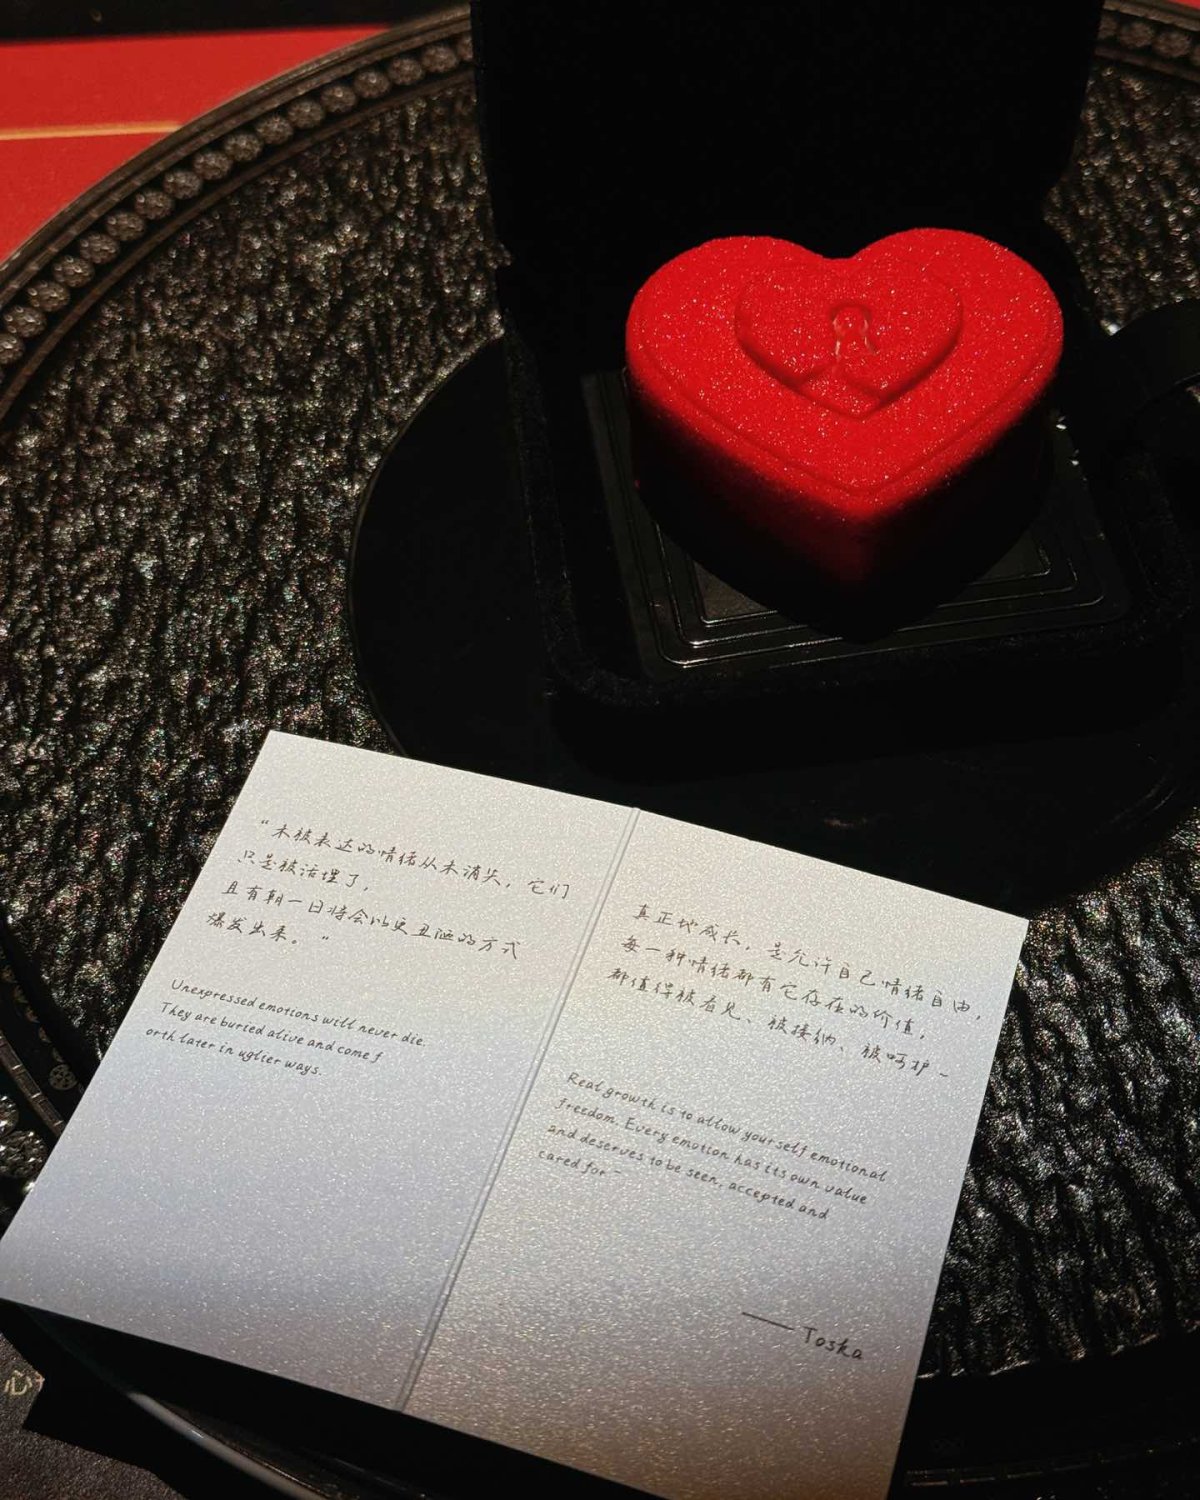 “未被表达的情绪从未消失，它们
只是被活埋了，
且有朝一日将会以更丑陋的方式
爆发出来。”
Unexpressed emotions will never die.
They are buried alive and come f
orth later in uglier ways.
真正地成长，是允许自己情绪自由，
每一种情绪都有它存在的价值，
都值得被看见、被接纳、被呵护-
Real growth is to allow yourself emotional
freedom. Every emotion has its own value
and deserves to be seen, accepted and
cared for -
—— Toska
心